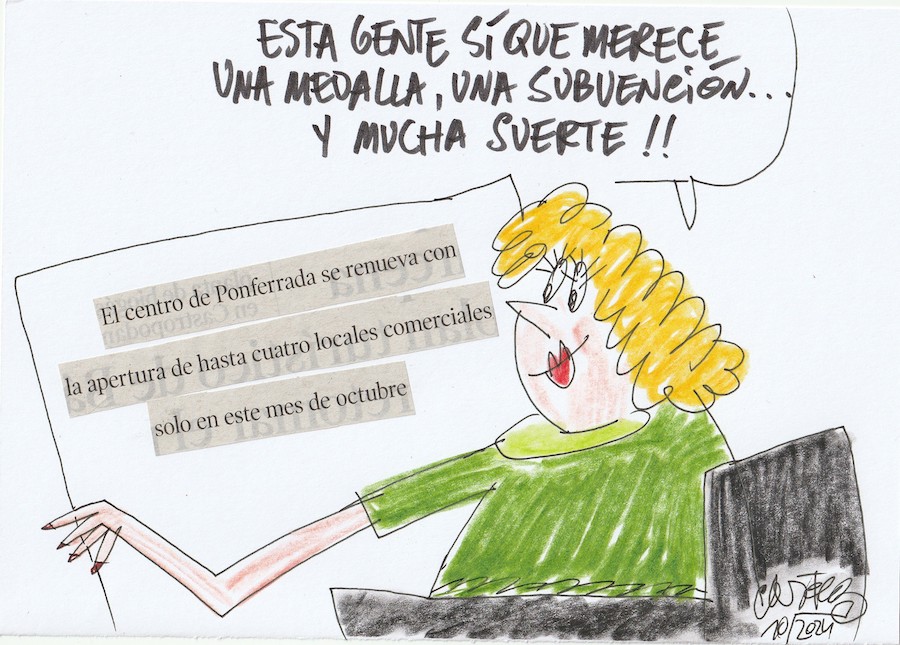 ESTA GENTE SÍ QUE MERECE
UNA MEDALLA, UNA SUBVENCIÓN...
Y MUCHA SUERTE !!
El centro de Ponferrada se renueva con
la apertura de hasta cuatro locales comerciales
solo en este mes de octubre
10/2024